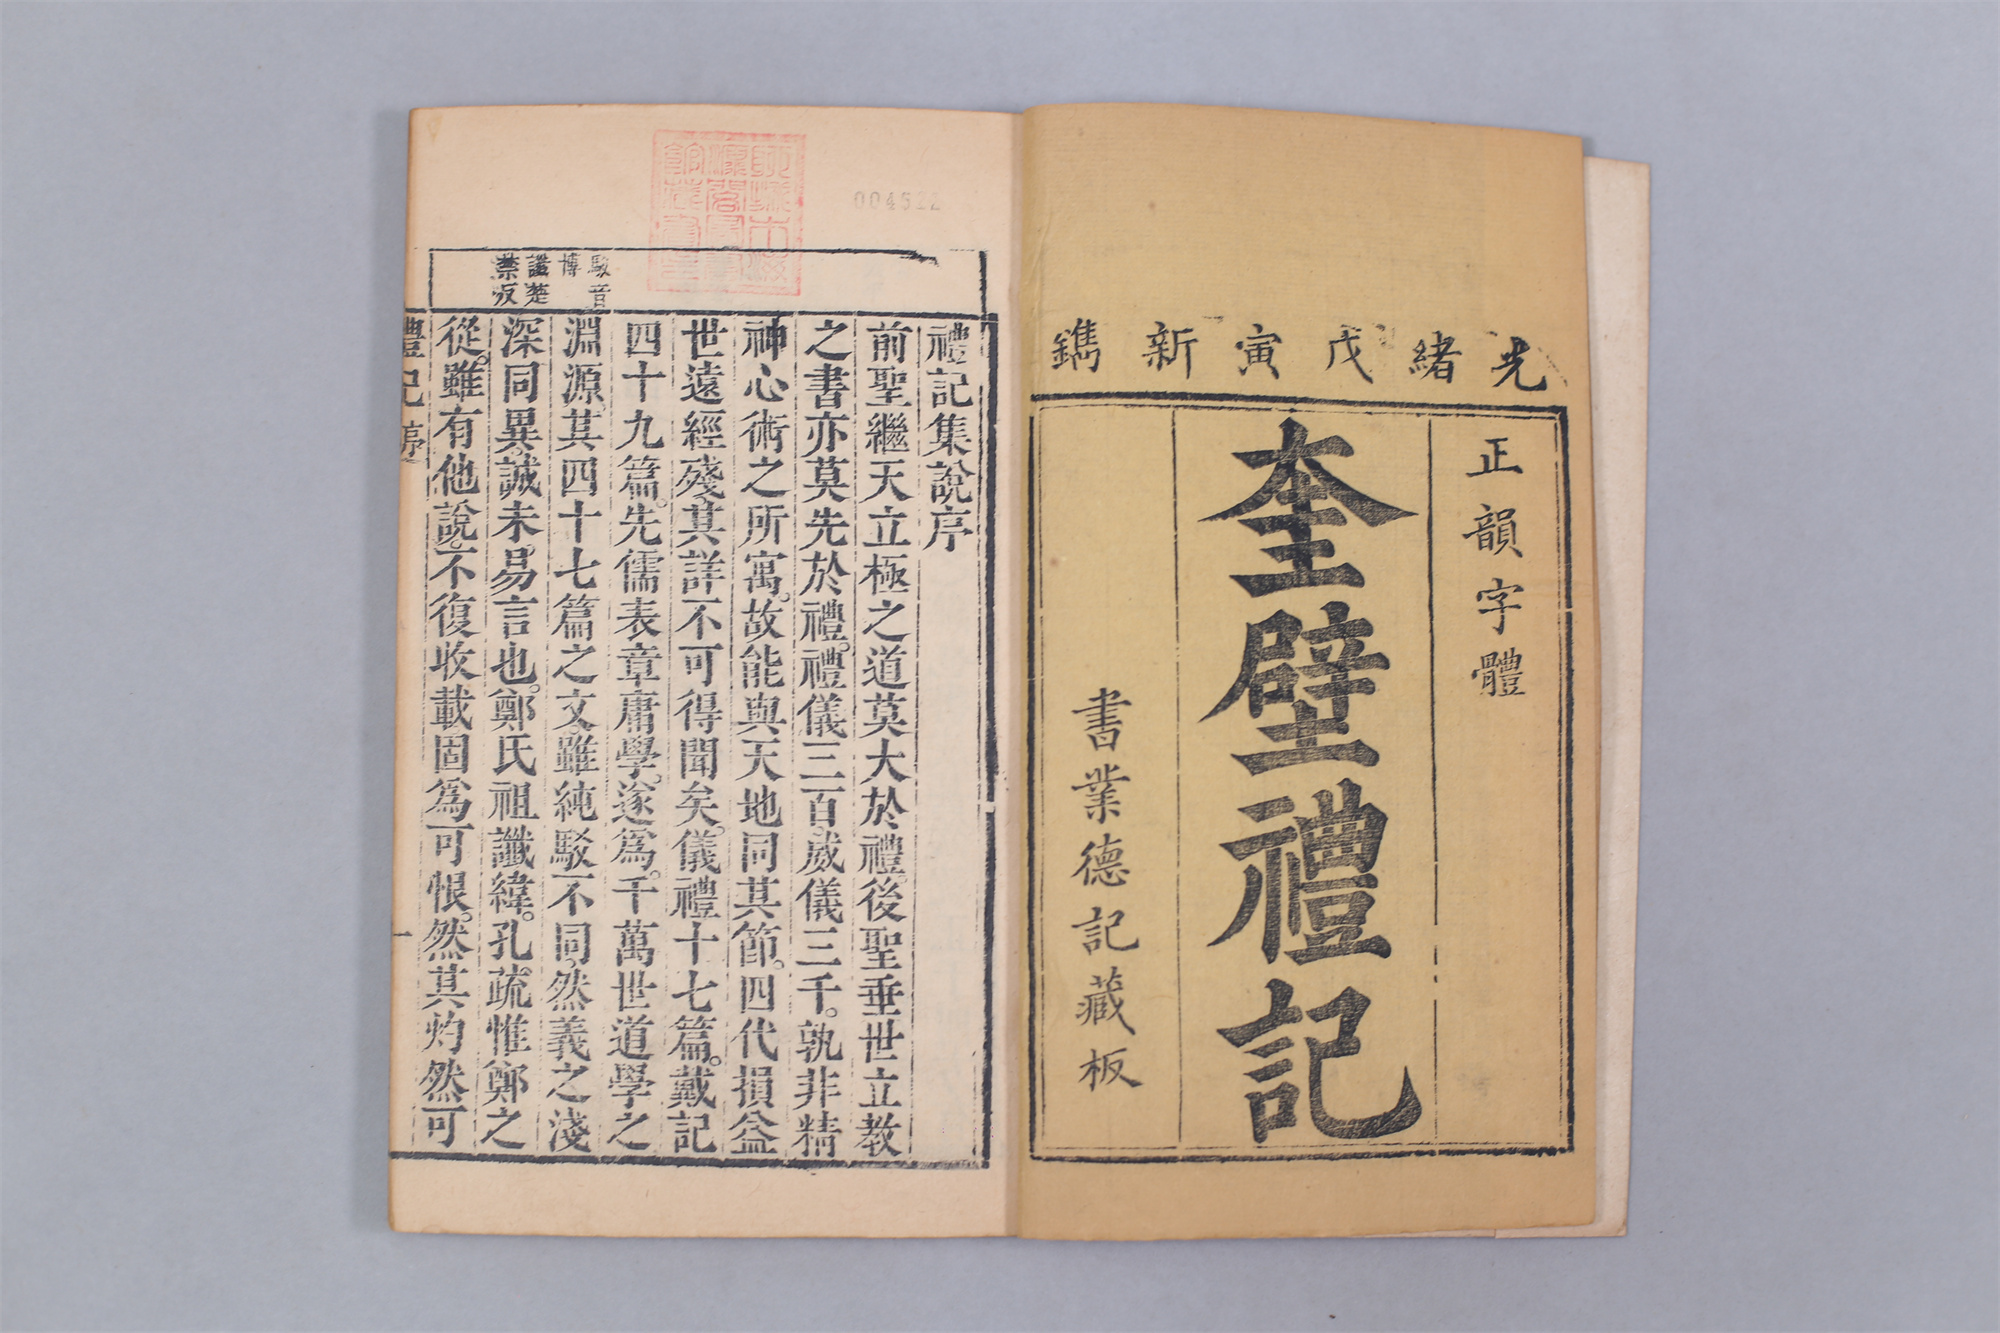 光緒戊寅新鐫
正韻字體
奎壁禮記
書業德記藏板
004522
駁音
博
讖楚
禁反
禮記集說序
前聖繼天立極之道莫大於禮。後聖垂世立教
之書亦莫先於禮。禮儀三百。威儀三千。孰非精
神心術之所寓。故能與天地同其節。四代損益
世遠經殘其詳不可得聞矣。儀禮十七篇。戴記
四十九篇。先儒表章庸學。遂為。千萬世道學之
淵源。其四十七篇之文。雖純駁不同。然義之淺
深同異。誠未易言也。鄭氏祖讖緯。孔疏惟鄭之
從。雖有他說。不復收載固為可恨。然其灼然可
禮記 序 一